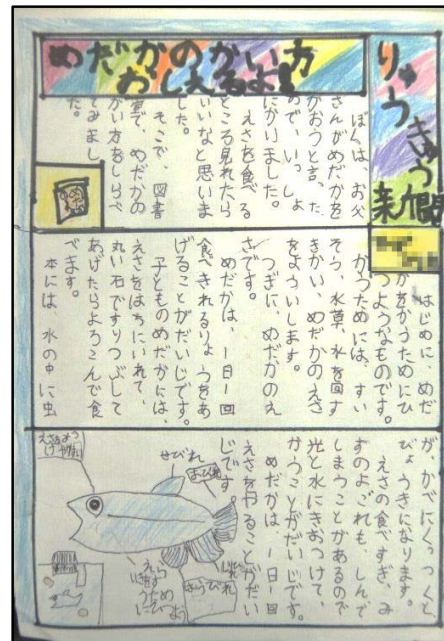 りゅうきゅう新聞
めだかのかい方
おしえるよ！
ぼくは、お父
さんがめだかを
かおうと言った
ので、いっしょ
にかいました。
えさを食べる
ところ見れたら
いいなと思いま
した。
そこで、図書
室で、めだかの
かい方をしらべ
てみまし
た。
はじめに、めだ
かをかうためにひ
つようなものです。
かうためには、すい
そう、水草、水を回す
きかい、めだかのえさ
をよういします。
つぎに、めだかのえ
さです。
めだかは、一日一回
食べきれるりょうをあ
げることがだいじです。
子どものめだかには、
えさをはちにいれて、
丸い石ですりつぶして
あげたらよろこんで食
べます。
本には、水の中に虫
が、かべにくっつくと
びょうきになります。
えさの食べすぎ、み
ずのよごれも、しんで
しまうことがあるので
光と水にきおつけて、
かうことがだいじです。
めだかは、一日一回
えさをやることがだい
じです。
せびれ
おびれ